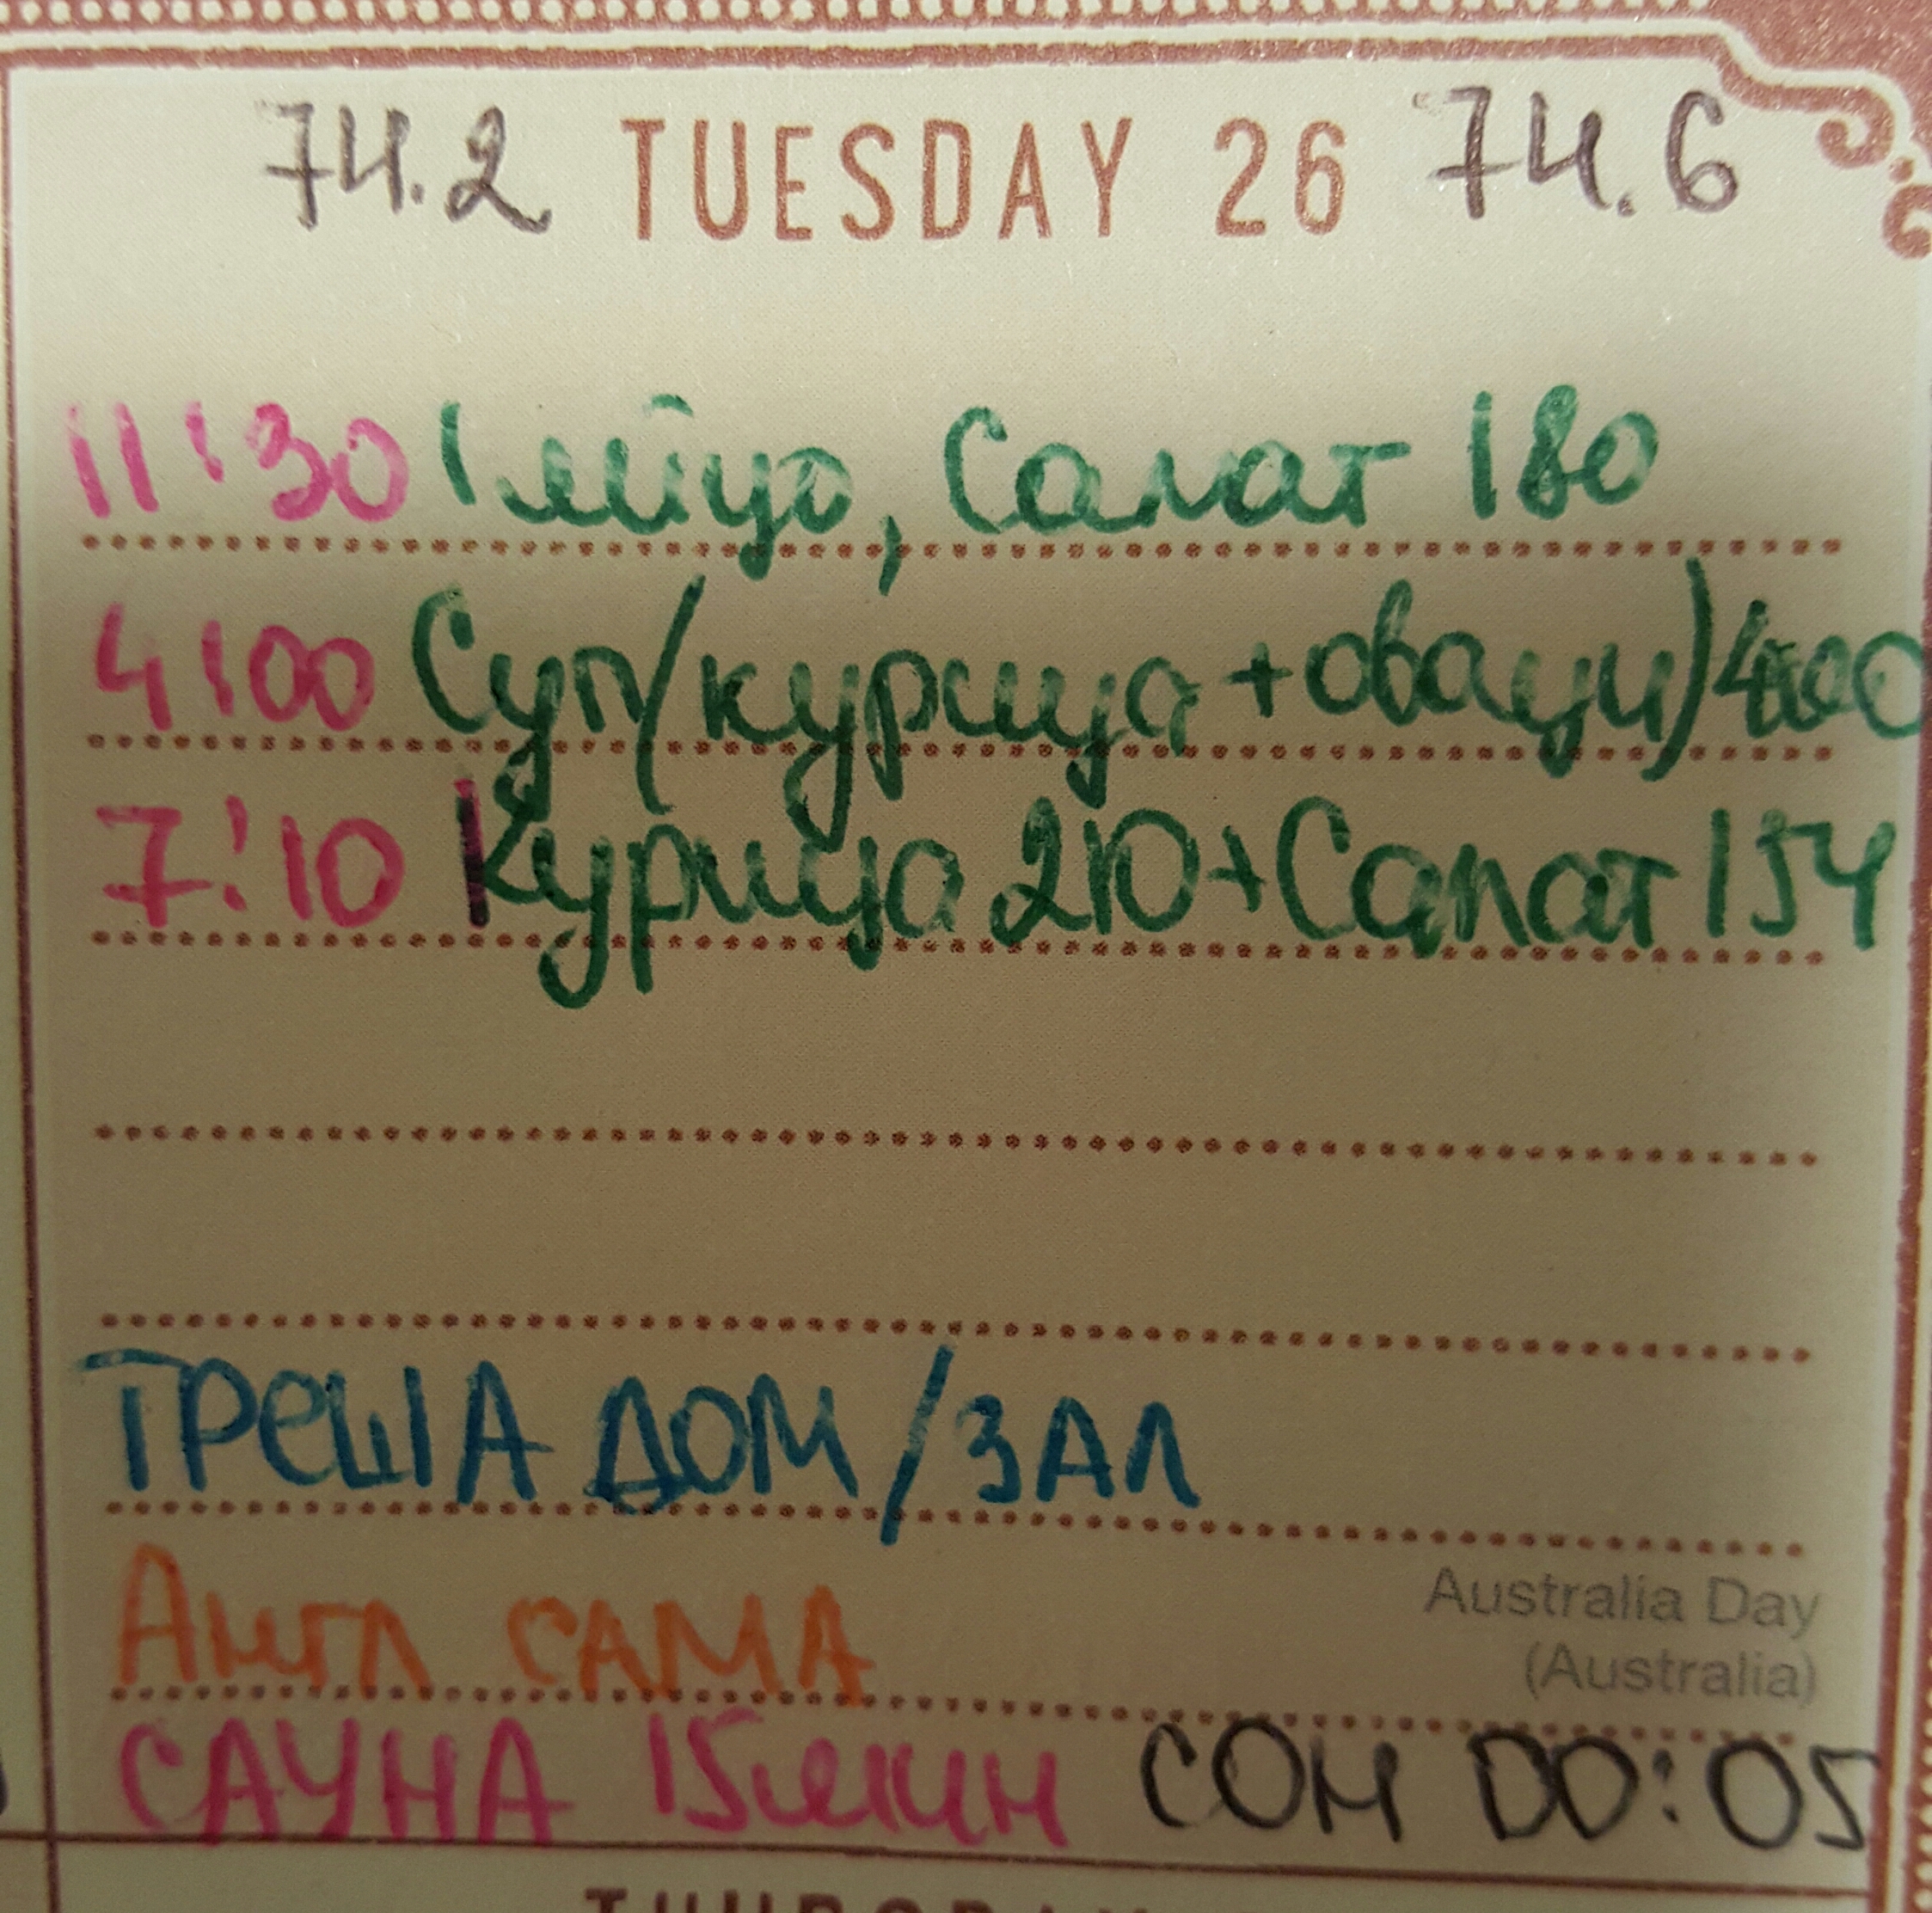 74.2 TUESDAY 26 74.6
11:30 1 яйцо, Салат 180
4:00 Суп/курица + оващи) 400
7:10 Курица 210 + Салат 154
ТРЕША ДОМ/ЗАЛ
Australia Day
Англ САМА
(Australia)
САУНА 15мин СОН 00:05